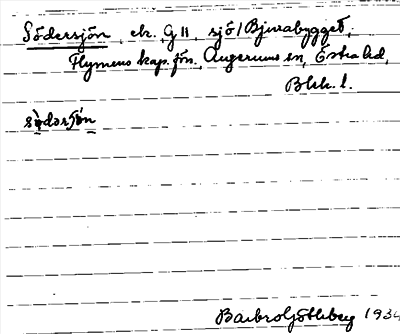 Södersjön, ek. G 11, sjö i Bjurabygget,
Flymens kap.förs. Augerums sn, Östra hd,
Blek. l.
sødərʃön
Barbro Göttberg 1934